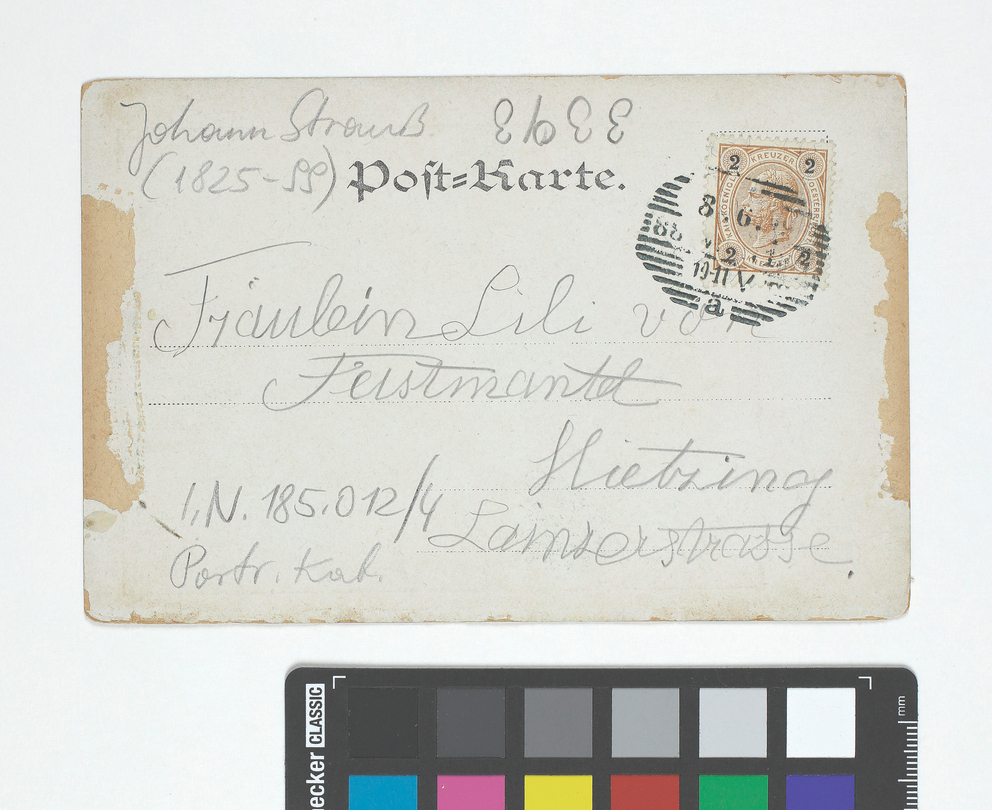 Johann Strauß
(1825-99)
Post-Karte.
2 KREUZER 2
2 2
8 6.
88
a
Fräulein Lili von
Feistmantel
Hietzing
Lainzerstrasse.
I.N. 185.012/4
Portr. Kab.
CLASSIC
mm